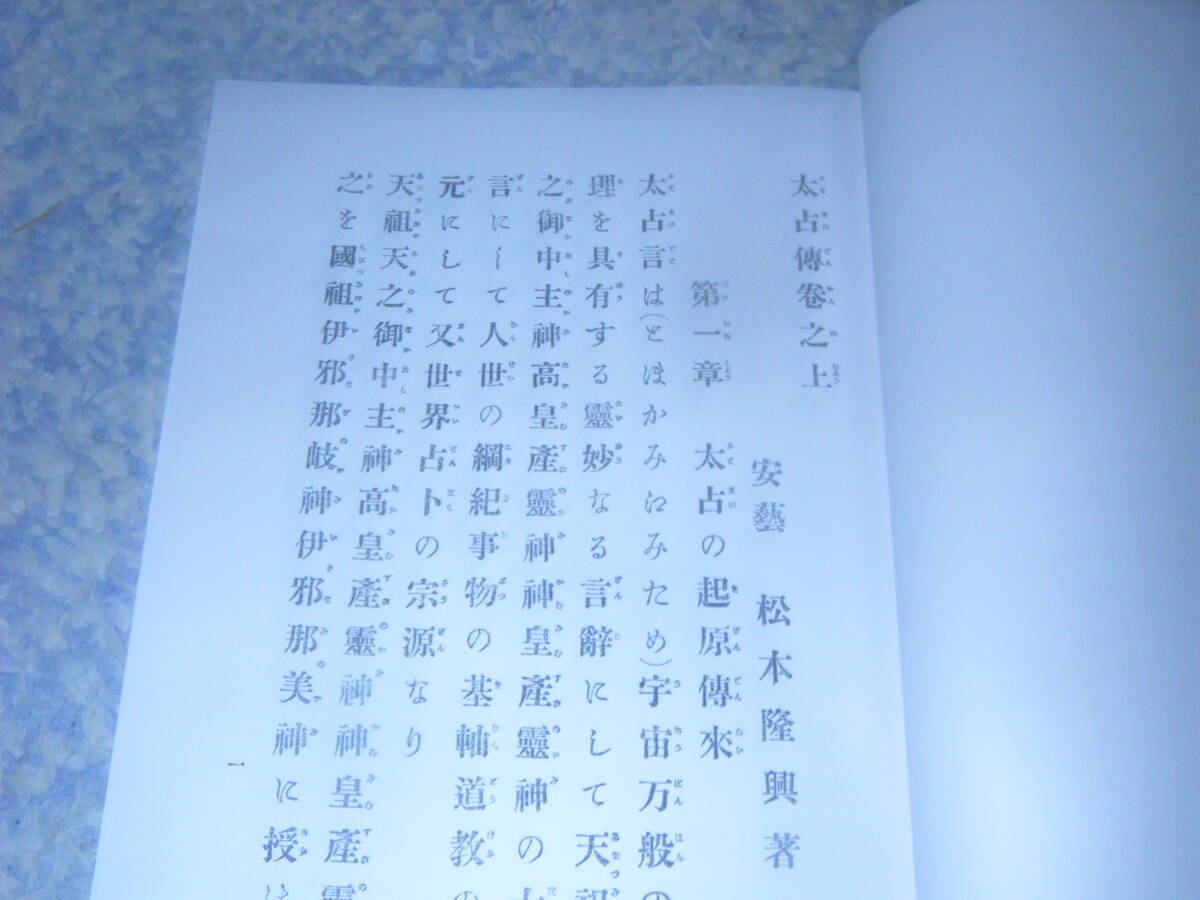 太占傳卷之上
安藝 松本隆興著
第一章 太占の起原傳來
太占言は(とほかみゑみため)宇宙万般の
理を具有する靈妙なる言辭にして天祖
之御中主神高皇產靈神神皇產靈神の
言にして人世の綱紀事物の基軸道教の
元にして又世界占卜の宗源なり
天祖天之御中主神高皇產靈神神皇產靈
之を國祖伊邪那岐神伊邪那美神に授け
一